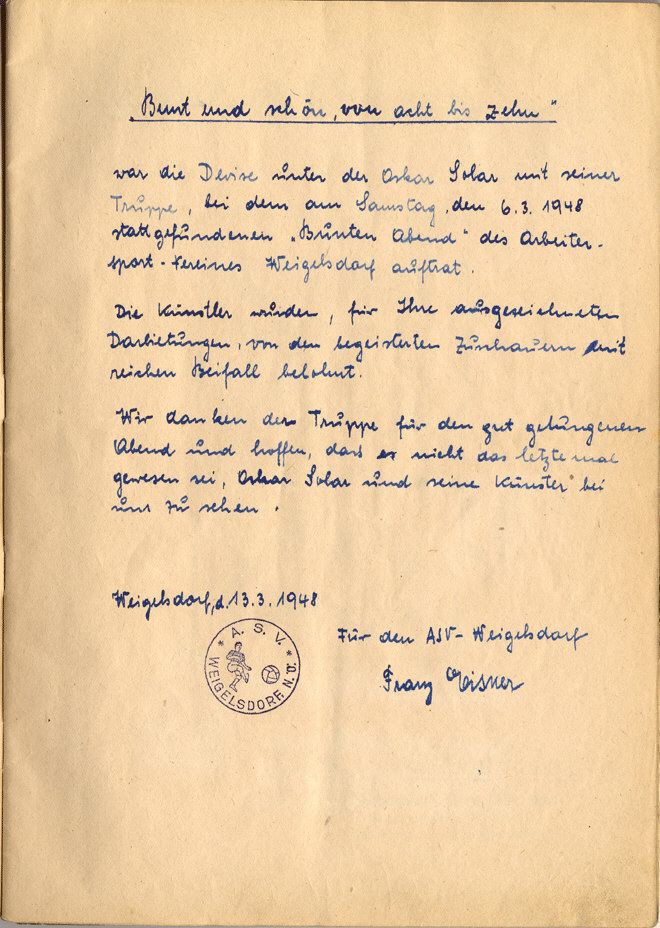 „Bunt und schön, von acht bis zehn"
war die Devise unter der Oskar Solar mit seiner
Truppe, bei dem am Samstag, den 6.3.1948
stattgefundenen „Bunten Abend" des Arbeiter-
sport-Vereines Weigelsdorf auftrat.
Die Künstler wurden, für Ihre ausgezeichneten
Darbietungen, von den begeisterten Zuschauern mit
reichen Beifall belohnt.
Wir danken der Truppe für den gut gelungenen
Abend und hoffen, dass es nicht das letzte mal
gewesen sei, Oskar Solar und seine Künster bei
uns zu sehen.
Weigelsdorf, d. 13.3.1948
* A. S. V. *
WEIGELSDORF N.Ö.
Für den ASV-Weigelsdorf
Franz Eisner